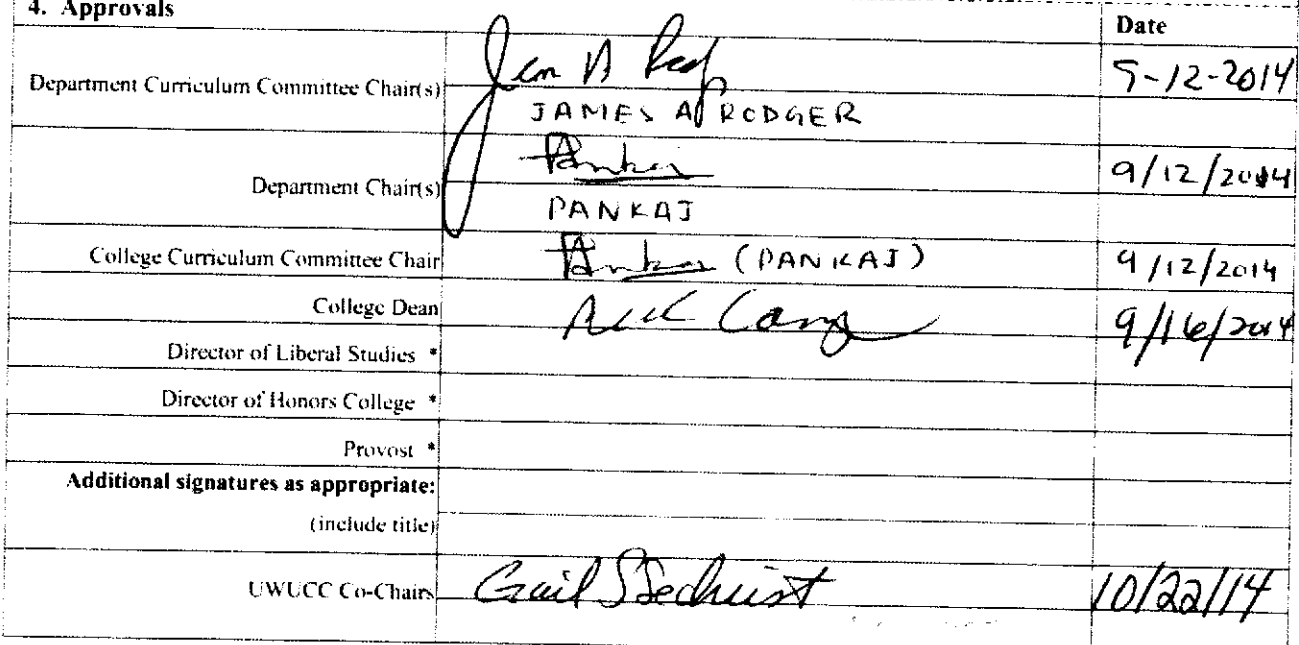 4. Approvals
Date
Department Curriculum Committee Chair(s) 9-12-2014
JAMES A RODGER
Department Chair(s) Pankaj 9/12/2014
PANKAJ
College Curriculum Committee Chair Pankaj (PANKAJ) 9/12/2014
College Dean 9/16/2014
Director of Liberal Studies *
Director of Honors College *
Provost *
Additional signatures as appropriate:
(include title)
UWUCC Co-Chairs Gail S Sechrist 10/22/14